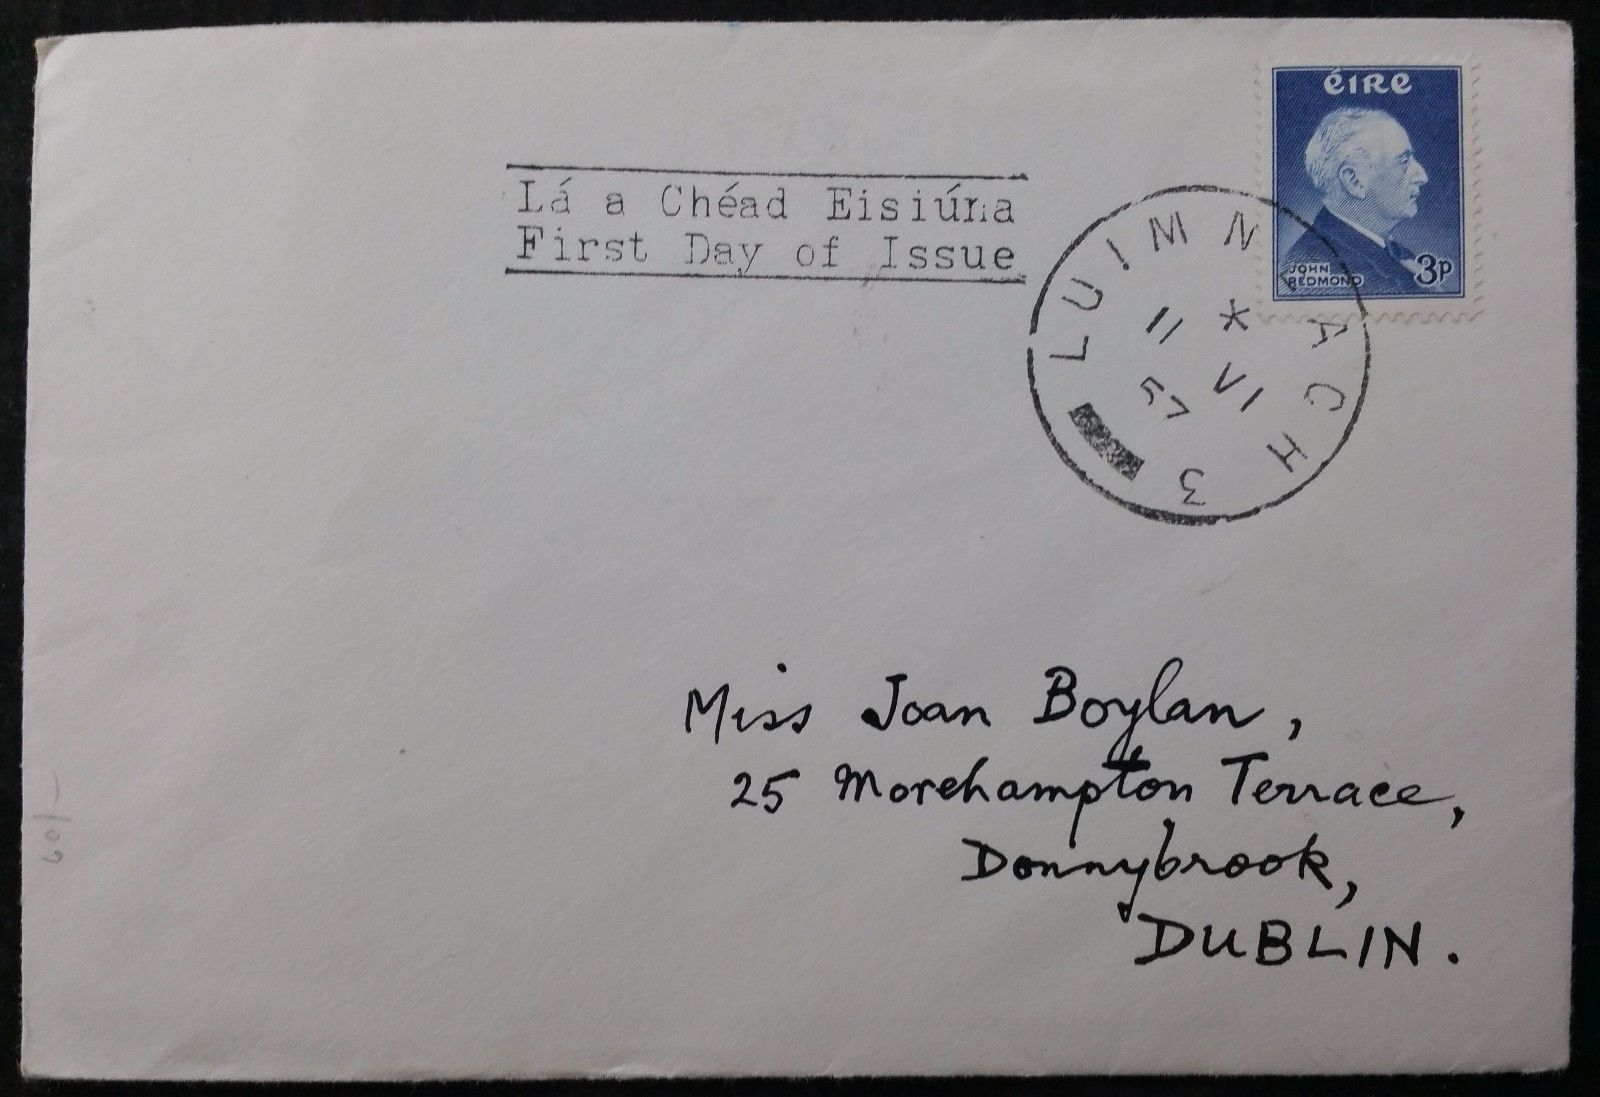 éIRe
JOHN
REDMOND 3p
Lá a Chéad Eisiúna
First Day of Issue
LUIMNEACH 3
11 VI
57
Miss Joan Boylan,
25 Morehampton Terrace,
Donnybrook,
DUBLIN.
60/-